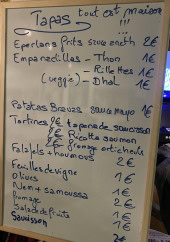 Tapas tout est maison !!!
Eperlans frits sauce aneth 2€
Empanadillas - Thon 1€
- Rillettes 1€
(veggie) - Dhal 1€
Patatas Bravas sauce mayo 1€
Tartines 1€ tapenade saucisson
Ricotta saumon
2€ fromage artichauts
Falafels + houmous 2€
Feuilles de vigne 1€
Olives 1€
Nem + samoussa 1€
fromage 2€
Salade de fruits 1€
Saucisson 2€